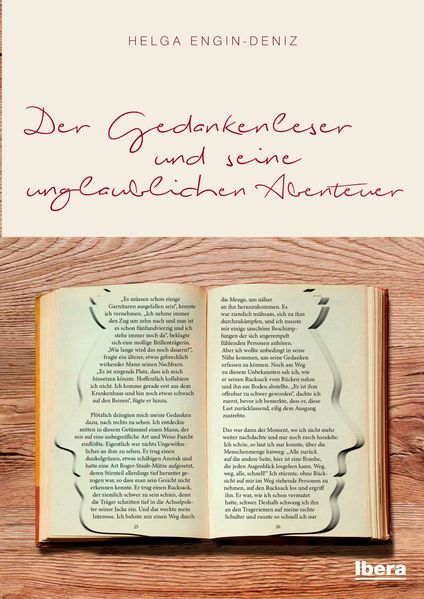 HELGA ENGIN-DENIZ
Der Gedankenleser
und seine
unglaublichen Abenteuer
„Es müssen schon einige
Garnituren ausgefallen sein", konnte
ich vernehmen. „Ich nehme immer
den Zug um zehn nach und nun ist
es schon fünfundvierzig und ich
stehe immer noch da", beklagte
sich eine mollige Brillenträgerin.
„Wie lange wird das noch dauern?",
fragte ein älterer, etwas gebrechlich
wirkender Mann seinen Nachbarn.
„Es ist nirgends Platz, dass ich mich
hinsetzen könnte. Hoffentlich kollabiere
ich nicht. Ich komme gerade erst aus dem
Krankenhaus und bin noch etwas schwach
auf den Beinen", fügte er hinzu.
Plötzlich drängten mich meine Gedanken
dazu, nach rechts zu sehen. Ich entdeckte
mitten in diesem Getümmel einen Mann, der
mir auf eine unbegreifliche Art und Weise Furcht
einflößte. Eigentlich war nichts Ungewöhn-
liches an ihm zu sehen. Er trug einen
dunkelgrünen, etwas schäbigen Anorak und
hatte eine Art Roger-Staub-Mütze aufgesetzt,
deren Stirnteil allerdings tief herunter ge-
zogen war, so dass man sein Gesicht nicht
erkennen konnte. Er trug einen Rucksack,
der ziemlich schwer zu sein schien, denn
die Träger schnitten tief in die Achselpols-
ter seiner Jacke ein. Und das weckte mein
Interesse. Ich bahnte mir einen Weg durch
25
die Menge, um näher
an ihn heranzukommen. Es
war ziemlich mühsam, sich zu ihm
durchzukämpfen, und ich musste
mir einige unschöne Beschimp-
fungen der sich angerempelt
fühlenden Personen anhören.
Aber ich wollte unbedingt in seine
Nähe kommen, um seine Gedanken
erfassen zu können. Noch am Weg
zu diesem Unbekannten sah ich, wie
er seinen Rucksack vom Rücken nahm
und ihn am Boden abstellte. „Er ist ihm
offenbar zu schwer geworden", dachte ich
zuerst, bevor ich bemerkte, dass er, diese
Last zurücklassend, eilig dem Ausgang
zustrebte.
Das war dann der Moment, wo ich nicht mehr
weiter nachdachte und nur noch rasch handelte.
Ich schrie, so laut ich nur konnte, über die
Menschenmenge hinweg: „Alle zurück
auf die andere Seite, hier ist eine Bombe,
die jeden Augenblick losgehen kann. Weg,
weg, alle, schnell!" Ich stürmte, ohne Rück-
sicht auf mir im Weg stehende Personen zu
nehmen, auf den Rucksack los und ergriff
ihn. Er war, wie ich schon vermutet
hatte, schwer. Deshalb schwang ich ihn
an den Trageriemen auf meine rechte
Schulter und rannte so schnell ich nur
26
Ibera